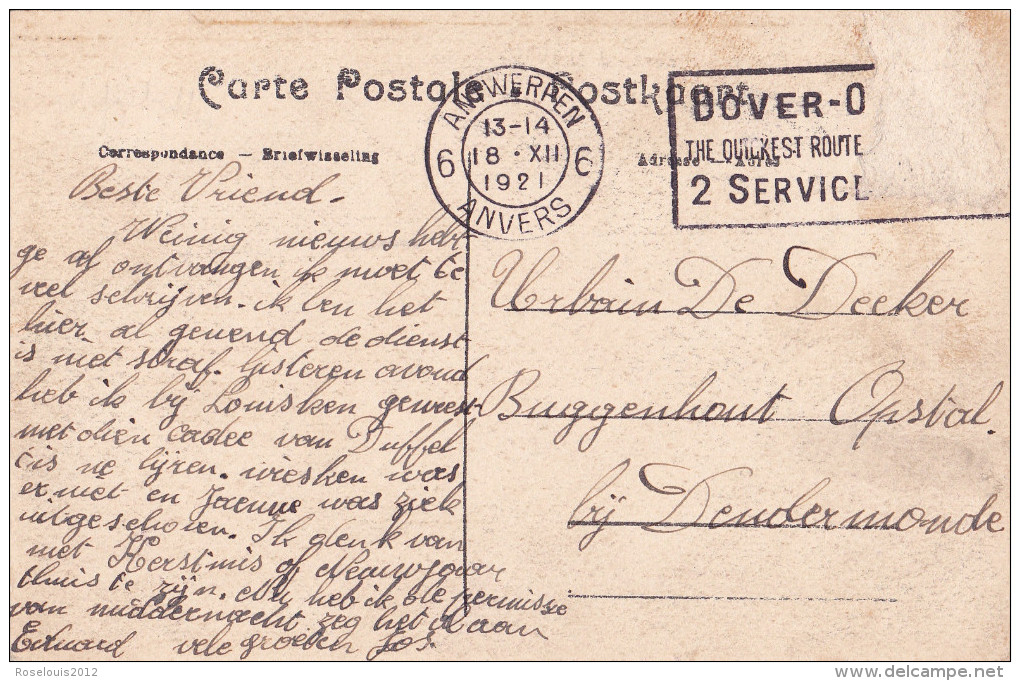 Carte Postale - Postkaart
Correspondance — Briefwisseling
Adresse — Adres
ANTWERPEN
6 13-14 6
18 · XII
1921
ANVERS
DOVER-O
THE QUICKEST ROUTE
2 SERVICE
Beste Vriend.
Weinig nieuws heb
ge af ontvangen ik moet te
veel schrijven. ik ben het
hier al gewend de dienst
is niet straf. Gisteren avond
heb ik bij Louisken geweest
met dien cadee van Duffel
tis ne fijnen. wiesken was
er niet en Jeanne was ziek
uitgeschoren. Ik denk van
met Kerstmis of Nieuwjaar
thuis te zijn. Nu heb ik de permissie
van middernacht zeg het al aan
Eduard vele groeten Jos.
Urbain De Decker
Buggenhout Opstal.
bij Dendermonde
Roselouis2012
delcampe.net